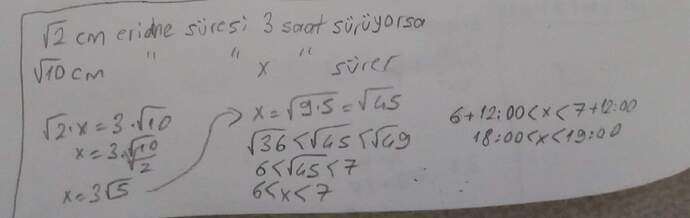 √2 cm eridne süresi 3 saat sürüyorsa
√10 cm " " x " sürer
√2 · x = 3 · √10
x = 3 · √10/√2
x = 3√5
x = √9·5 = √45
√36 < √45 < √49
6 < √45 < 7
6 < x < 7
6 + 12:00 < x < 7 + 12:00
18:00 < x < 19:00